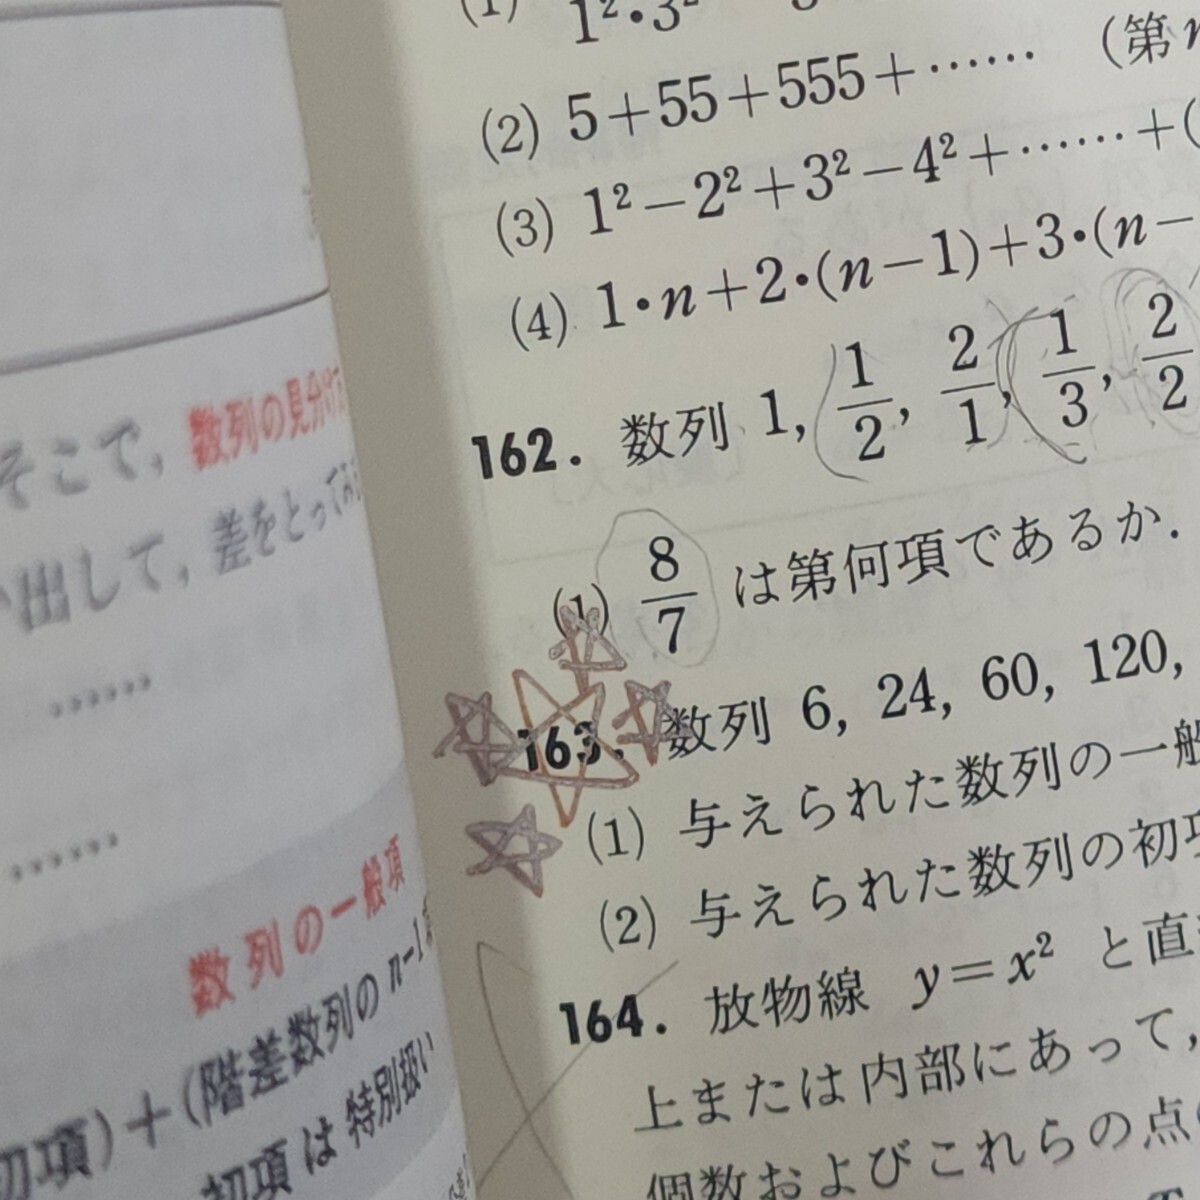 そこで，数列の見分け
出して，差をとってみる
……
……
数列の一般項
初項)＋(階差数列の n−1
初項は特別扱い
(1) 1²・3²
(2) 5＋55＋555＋…… (第n
(3) 1²−2²＋3²−4²＋……＋(
(4) 1・n＋2・(n−1)＋3・(n−
162. 数列 1, 1/2, 2/1, 1/3, 2/2
(1) 8/7 は第何項であるか．
163. 数列 6, 24, 60, 120,
(1) 与えられた数列の一般
(2) 与えられた数列の初項
164. 放物線 y＝x² と直
上または内部にあって，
個数およびこれらの点